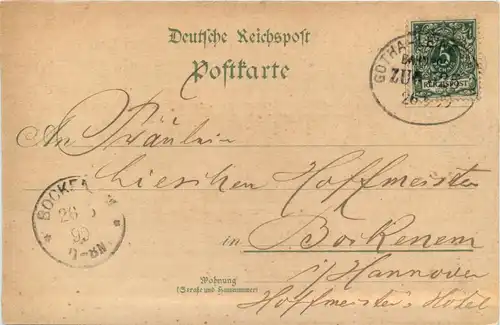 Deutsche Reichspost
Postkarte
GOTHA-LE
BAHN
ZUG
26
5
REICHSPOST
An Fräulein
Lieschen Hoffmeister
in Bockenem
i/Hannover
Hoffmeister's Hotel
BOCKENEM
26
99
Wohnung
(Straße und Hausnummer)